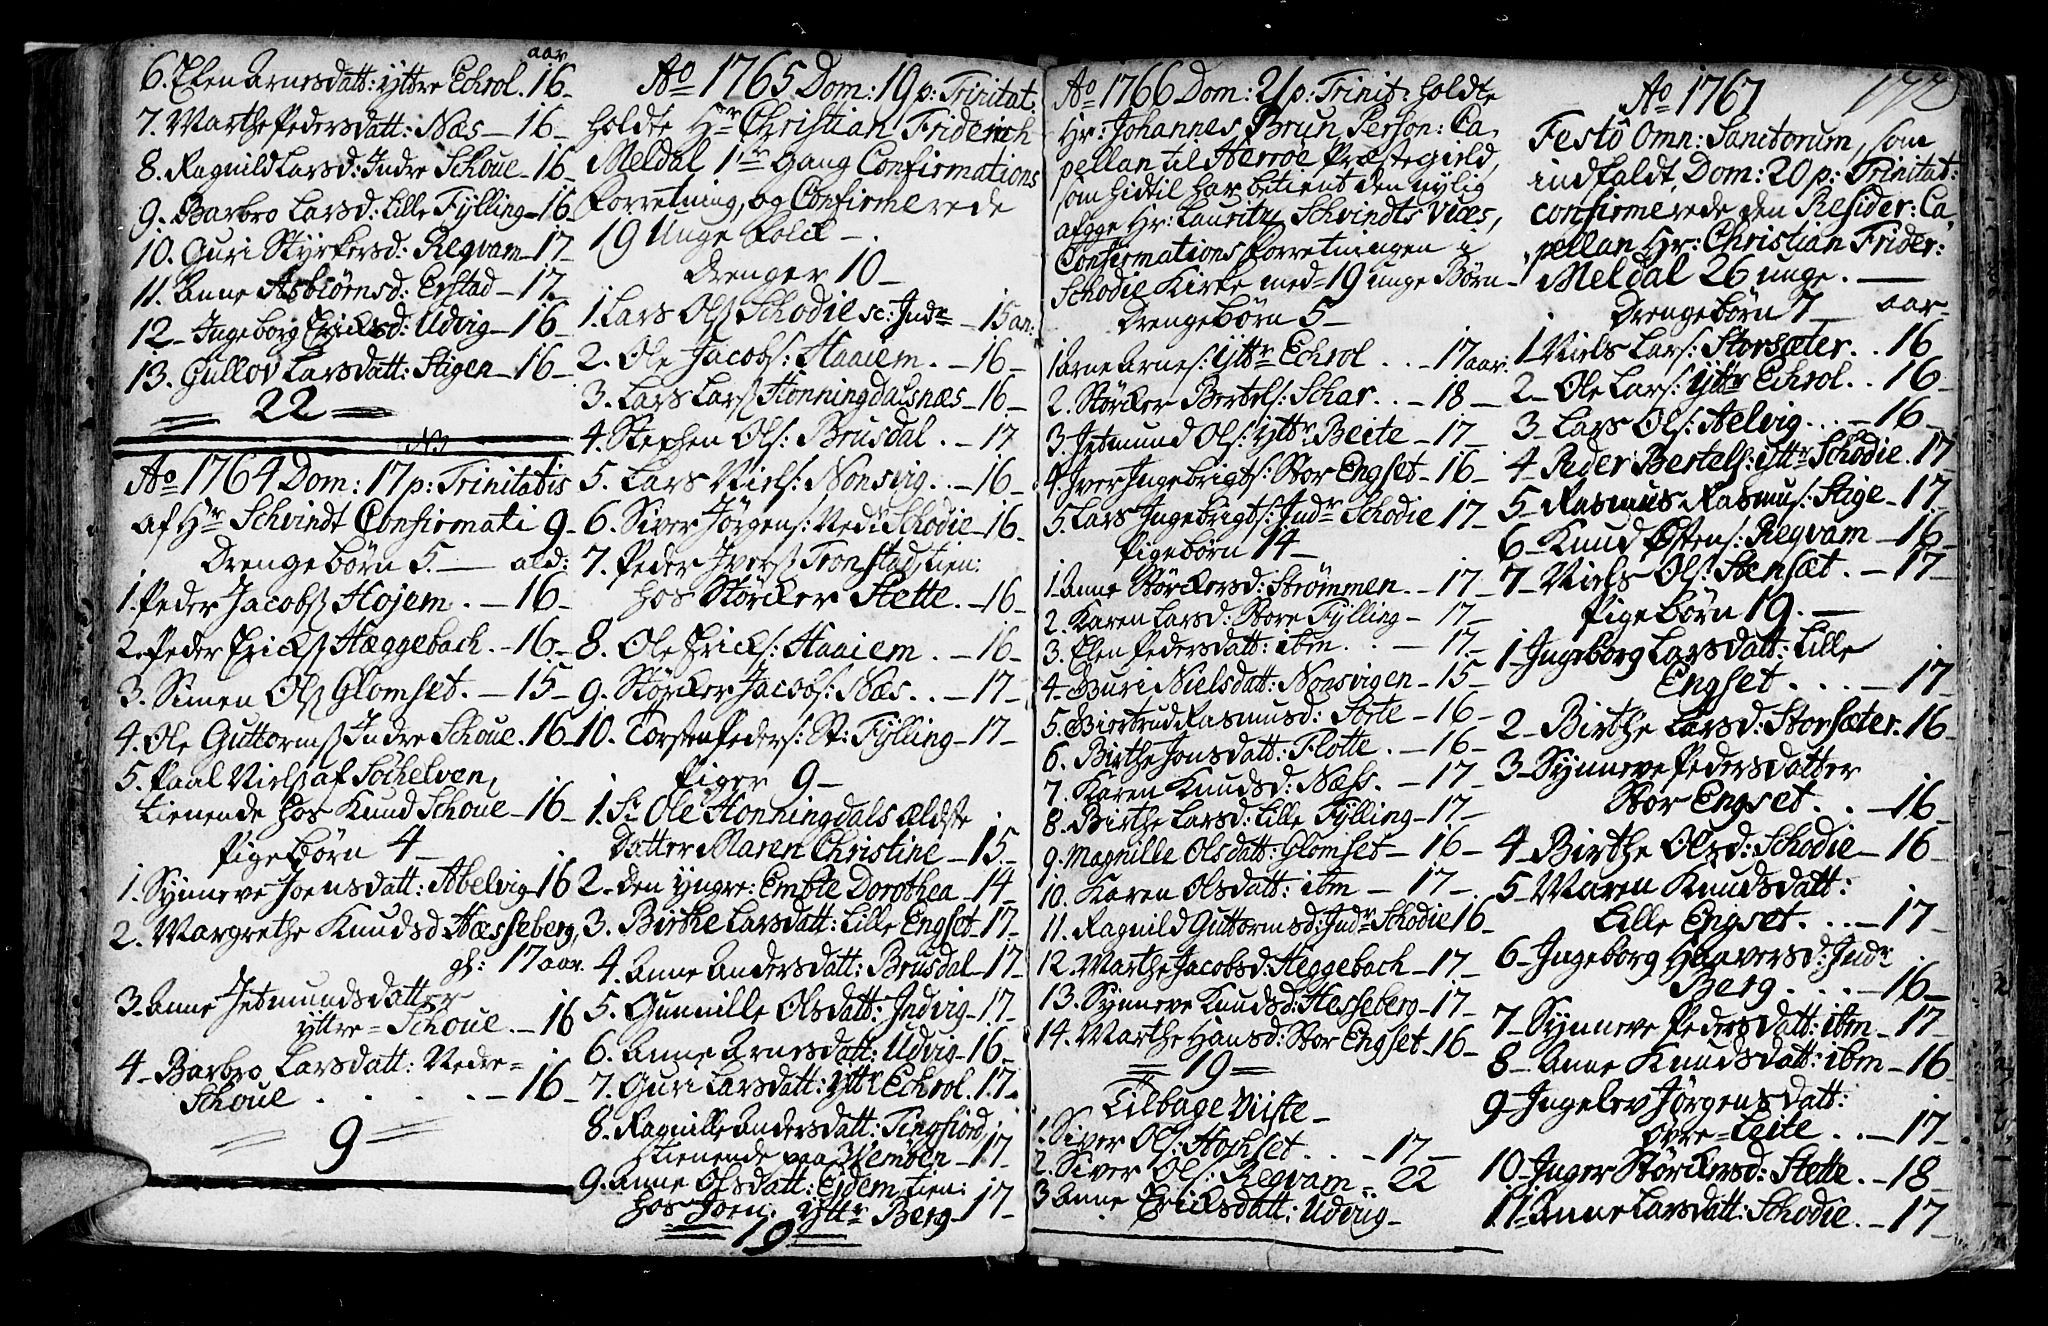 aar
6. Elen Arnesdatt: yttre Echrol. 16-
7. Marthe Pedersdatt: Næs - 16-
8. Ragnild Larsd: Indre Schoue - 16-
9. Barbro Larsd: Lille Fylling - 16-
10. Guri Styrkersd: Reqvam - 17-
11. Anne Asbiörnsd: Erstad - 17-
12 - Ingeborg Ericksd: Udvig - 16-
13. Gullov Larsdatt: Stigen - 16-
22
Ao 1764 Dom: 17 p: Trinitatis
af Hr Schvindt Confirmati 9-
Drengebörn 5. - ald:
1. Peder Jacobs Hojem. - 16-
2. Peder Ericks Hæggebach. - 16-
3. Simen Ols Glomset. - 15-
4. Ole Guttorms Indre Schoue. 16-
5. Paal Niels af Söchelven,
tienende hos Knud Schoue - 16-
Pigebörn 4-
1. Synneve Joensdatt: Abelvig - 16
2. Margrethe Knudsd Hæsseberg,
gl: 17 aar.
3 - Anne Jetmundsdatter
yttre = Schoue. - 16
4 - Barbro Larsdatt: Nedre =
Schoue . . . . - 16-
9
Ao 1765 Dom: 19 p: Trinitat.
holdte Hr Christian Friderich
Meldal 1ste Gang Confirmations
Forretning, og Confirmerede
19 Unge Folck -
Drenger 10 -
1. Lars Ols Schodie sc: Indr - 15 an:
2. Ole Jacobs: Haaiem. - 16-
3. Lars Lars Honningdalsnæs - 16-
4. Stephen Ols: Brusdal. - 17
5. Lars Niels: Nonsvig. - 16-
6. Siver Jörgens: Nedr Schodie - 16-
7. Peder Ivers Tronstad, tien:
hos Störcker Stette. - 16-
8. Ole Ericks: Haaiem. - 16-
9. Störcker Jacobs: Næs. . - 17-
10. Torsten Peders: St: Fylling - 17-
Piger 9-
1. Sr Ole Honningdals ældste
Datter Maren Christine - 15-
2 - den yngre: Embte Dorothea - 14-
3. Birthe Larsdatt: Lille Engset - 17-
4. Anne Andersdatt: Brusdal - 17-
5. Gunnille Olsdatt: Indvig - 17-
6. Anne Arnesdatt: Udvig - 16-
7. Guri Larsdatt: yttr Echrol. 17-
8. Ragnille Andersdatt: Tingfiord,
tienende paa Vemöen - 17-
9. Anne Olsdatt: Eidem tien:
hos Joen: yttr Berg - 17-
19
Ao 1766 Dom: 21 p: Trinit: holdte
Hr: Johannes Brun, Person: Ca-
pellan til Herröe Præstegield,
som hidtil har betient den nylig
afgge Hr: Lauritz Schvindts Vices,
Confirmations Forretningen i
Schodie Kirke med 19 unge Börn -
Drengebörn 5 -
1 Arne Arnes: yttr Echrol . . . - 17 aar.
2. Störcker Bertels: Schar. . . - 18 -
3. Jetmund Ols: yttr Beite - 17 -
4. Iver Ingebrigts: Stor Engset - 16 -
5. Lars Ingebrigts: Indr Schodie 17 -
Pigebörn 14 -
1. Anne Störckersd: Strömmen. - 17 -
2. Karen Larsd: Store Fylling - 17 -
3. Elen Pedersdatt: ibm. . - 17 -
4 - Guri Nielsdatt: Nonsvigen - 15 -
5. Giertrud Rasmusd: Sorte - 16 -
6. Birthe Jonsdatt: Flotte. - 16 -
7. Karen Knudsd: Næss. - 17
8. Birthe Larsd: Lille Fylling - 17 -
9. Magnille Olsdatt: Glomset - 16 -
10. Karen Olsdatt: ibm - 17 -
11. Ragnild Guttormsd: Indr Schodie 16 -
12. Marthe Jacobsd: Heggebach - 17 -
13. Synneve Knudsd: Hesseberg - 17 -
14. Marthe Hansd: Stor Engset - 16 -
19
Tilbage Viiste -
1. Siver Ols: Hochset. . . - 17 -
2. Siver Ols: Reqvam - 22
3 Anne Ericksdatt: Udviig -
Ao 1767
Festo Omn: Sanctorum, som
indfaldt Dom: 20 p: Trinitat:
confirmerede den Resider: Ca-
pellan Hr: Christian Frider:
Meldal 26 unge. -
Drengebörn 7 - aar -
1 Niels Lars: Storsæter. . 16
2 - Ole Lars: yttr Echrol. . 16 -
3 - Lars Ols: Aelvig. . . - 16 -
4 - Peder Bertels: yttr Schodie. 17
5 - Rasmus Rasmus: Stige - 17
6 - Knud Østens: Reqvam - 16 -
7 - Niels Ols: Stenset. - 17 -
Pigebörn 19. -
1 - Ingeborg Larsdatt: Lille
Engset. . . . - 17 -
2 - Birthe Larsd: Storsæter. 16 -
3 - Synneve Pedersdatter
Stor Engset. . - 16 -
4 - Birthe Olsd: Schodie - 16 -
5 - Maren Knudsdatt:
Lille Engset. . . - 17 -
6 - Ingeborg Haaversd: Indr
Berg. . . . - 16 -
7 - Synneve Pedersdatt: ibm - 17 -
8 - Anne Knudsdatt: ibm - 16 -
9 - Ingelev Jörgensdatt:
øvre = Leite . . - 17 -
10 - Inger Störckersd: Stette. - 18 -
11 - Anne Larsdatt: Schodie. - 17 -